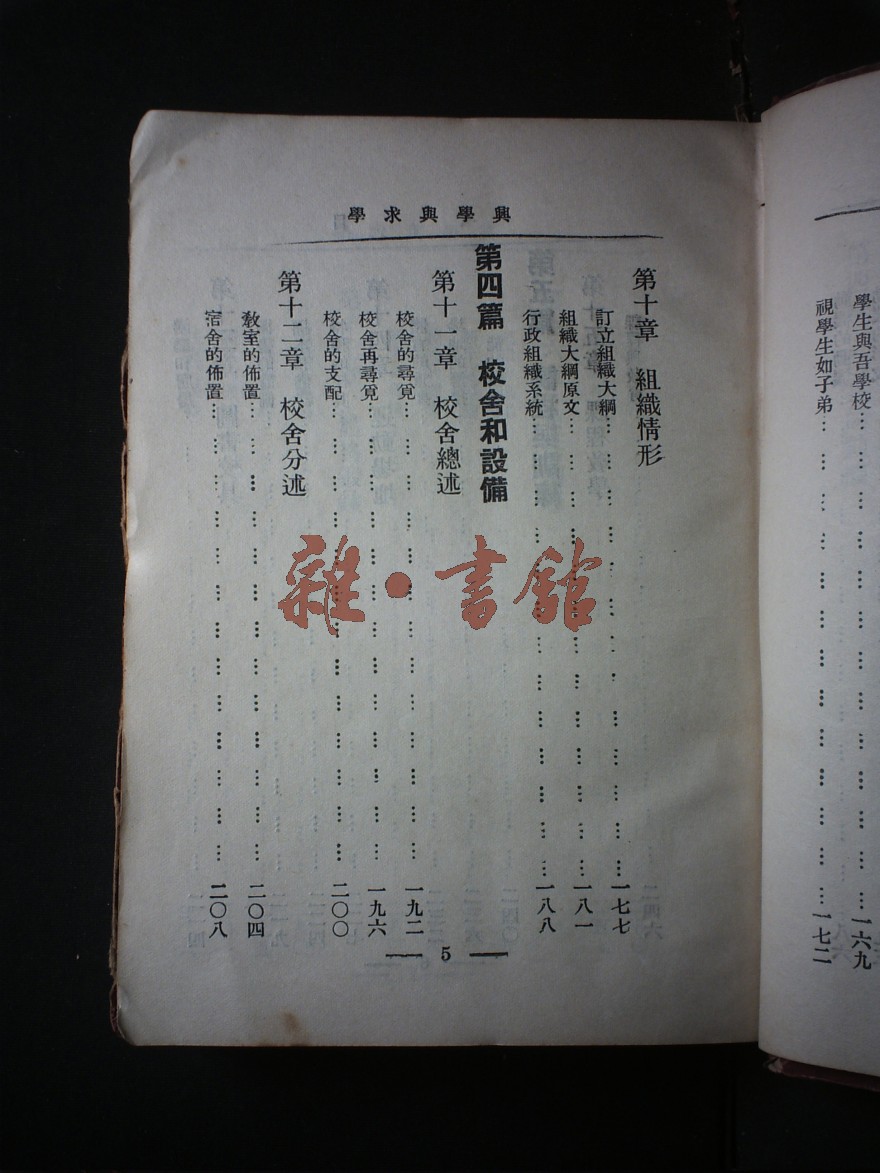 學生與吾學校… … … … … … … … … …一六九
視學生如子弟… … … … … … … … … …一七二
興學與求學
第十章 組織情形
訂立組織大綱… … … … … … … … … …一七七
組織大綱原文… … … … … … … … … …一八一
行政組織系統… … … … … … … … … …一八八
第四篇 校舍和設備
第十一章 校舍總述
校舍的尋覓… … … … … … … … … …一九二
校舍再尋覓… … … … … … … … … …一九六
校舍的支配… … … … … … … … … …二〇〇
第十二章 校舍分述
教室的佈置… … … … … … … … … …二〇四
宿舍的佈置… … … … … … … … … …二〇八
5
雜·書館